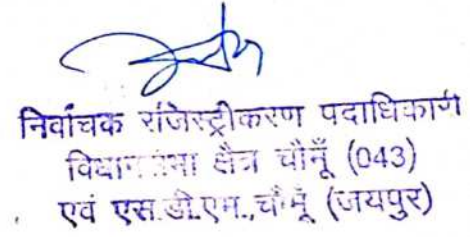 निर्वाचक रजिस्ट्रीकरण पदाधिकारी
विधानसभा क्षेत्र चौमूँ (043)
एवं एस.डी.एम.,चौमूँ (जयपुर)